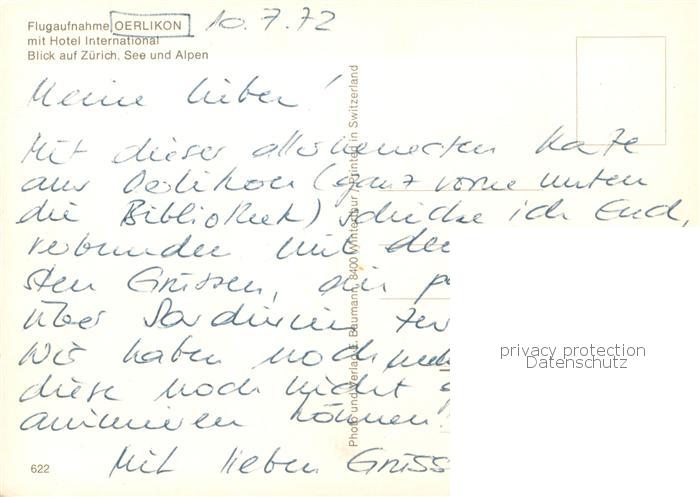 Flugaufnahme OERLIKON 10.7.72
mit Hotel International
Blick auf Zürich, See und Alpen
Meine Lieben!
Mit dieser allerneuesten Karte
aus Oerlikon (ganz vorne unten
die Bibliothek) schicke ich Euch,
verbunden mit den
sten Grüssen, ein
über Sardinien
Wir haben noch
diese noch nicht
animieren können!
Mit lieben Grüss
622
Photo und Verlag E. Baumann, 8400 Winterthur / Printed in Switzerland
privacy protection
Datenschutz